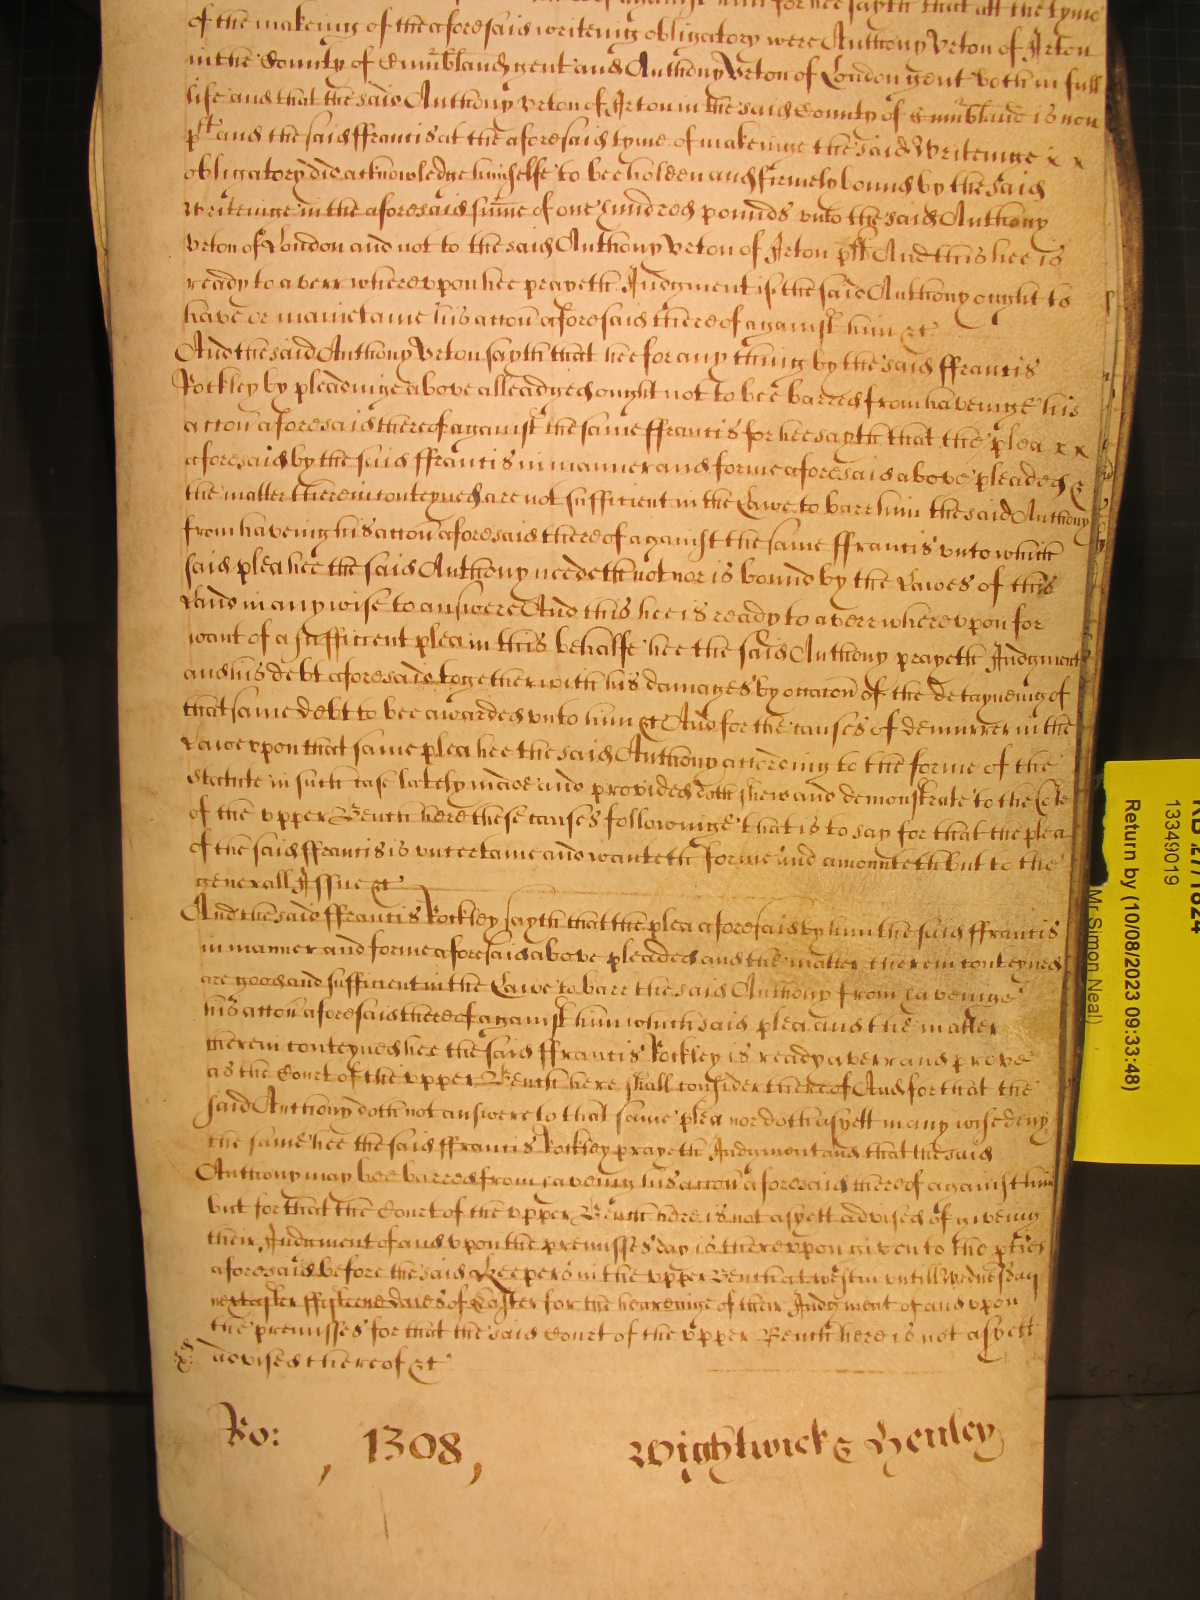 against him for hee sayth that att the tyme
of the makeing of the aforesaid writeing obligatory were Anthony Urton of Irton
in the County of Cumbland gent and Anthony Urton of London gent both in full
life and that the said Anthony Urton of Irton in the said County of Cumbland is now
plt and the said ffrancis at the aforesaid tyme of makeinge the said Writeinge x x
obligatory did acknowledge himselfe to bee holden and firmely bound by the said
writeinge in the aforesaid sume of one hundred pounds unto the said Anthony
Urton of London and not to the said Anthony Urton of Irton plt And this hee is
ready to averr whereupon hee prayeth Judgment if the said Anthony ought to
have or mainetaine his accon aforesaid thereof against him &c
And the said Anthony Urton sayth that hee for any thing by the said ffrancis
Rockley by pleadinge above alleadged ought not to bee barred from haveinge his
accon aforesaid thereof against the same ffrancis for hee sayth that the plea x x
aforesaid by the said ffrancis in manner and forme aforesaid above pleaded &
the matter therein conteyned are not sufficient in the Lawe to barr him the said Anthony
from haveing his accon aforesaid thereof against the same ffrancis unto which
said plea hee the said Anthony needeth not nor is bound by the Lawes of this
Land in any wise to answere And this hee is ready to averr whereupon for
want of a sufficient plea in this behalfe hee the said Anthony prayeth Judgment
and his debt aforesaid together with his damages by occacon of the detayneing of
that same debt to bee awarded unto him &c And for the causes of demurrer in the
Lawe upon that same plea hee the said Anthony according to the forme of the
Statute in such case lately made and provided doth shew and demonstrate to the Cote
of the upper Bench here these causes followinge that is to say for that the plea
of the said ffrancis is uncertaine and wanteth forme and amounteth but to the
generall Issue &c
And the said ffrancis Rockley sayth that the plea aforesaid by him the said ffrancis
in manner and forme aforesaid above pleaded and the matter therein conteyned
are good and sufficient in the Lawe to barr the said Anthony from haveinge
his accon aforesaid thereof against him which said plea and the matter
therein conteyned hee the said ffrancis Rockley is ready averr and prove
as the Court of the upper Bench here shall consider thereof And for that the
said Anthony doth not answere to that same plea nor doth as yett in any wise deny
the same hee the said ffrancis Rockley prayeth Judgment and that the said
Anthony may bee barred from haveing his accon aforesaid thereof against him
but for that the Court of the upper Bench here is not as yett advised of giveing
their Judgment of and upon the premisses day is thereupon given to the pties
aforesaid before the said Keepers in the upper Bench at Westm untill Wednesday
next after ffifteene daies of Easter for the heareinge of their Judgment of and upon
the premisses for that the said Court of the upper Bench here is not as yett
advised thereof &c
Ro: , 1308, Wightwick & Henley
13349019
Return by (10/08/2023 09:33:48)
Mr Simon Neal)